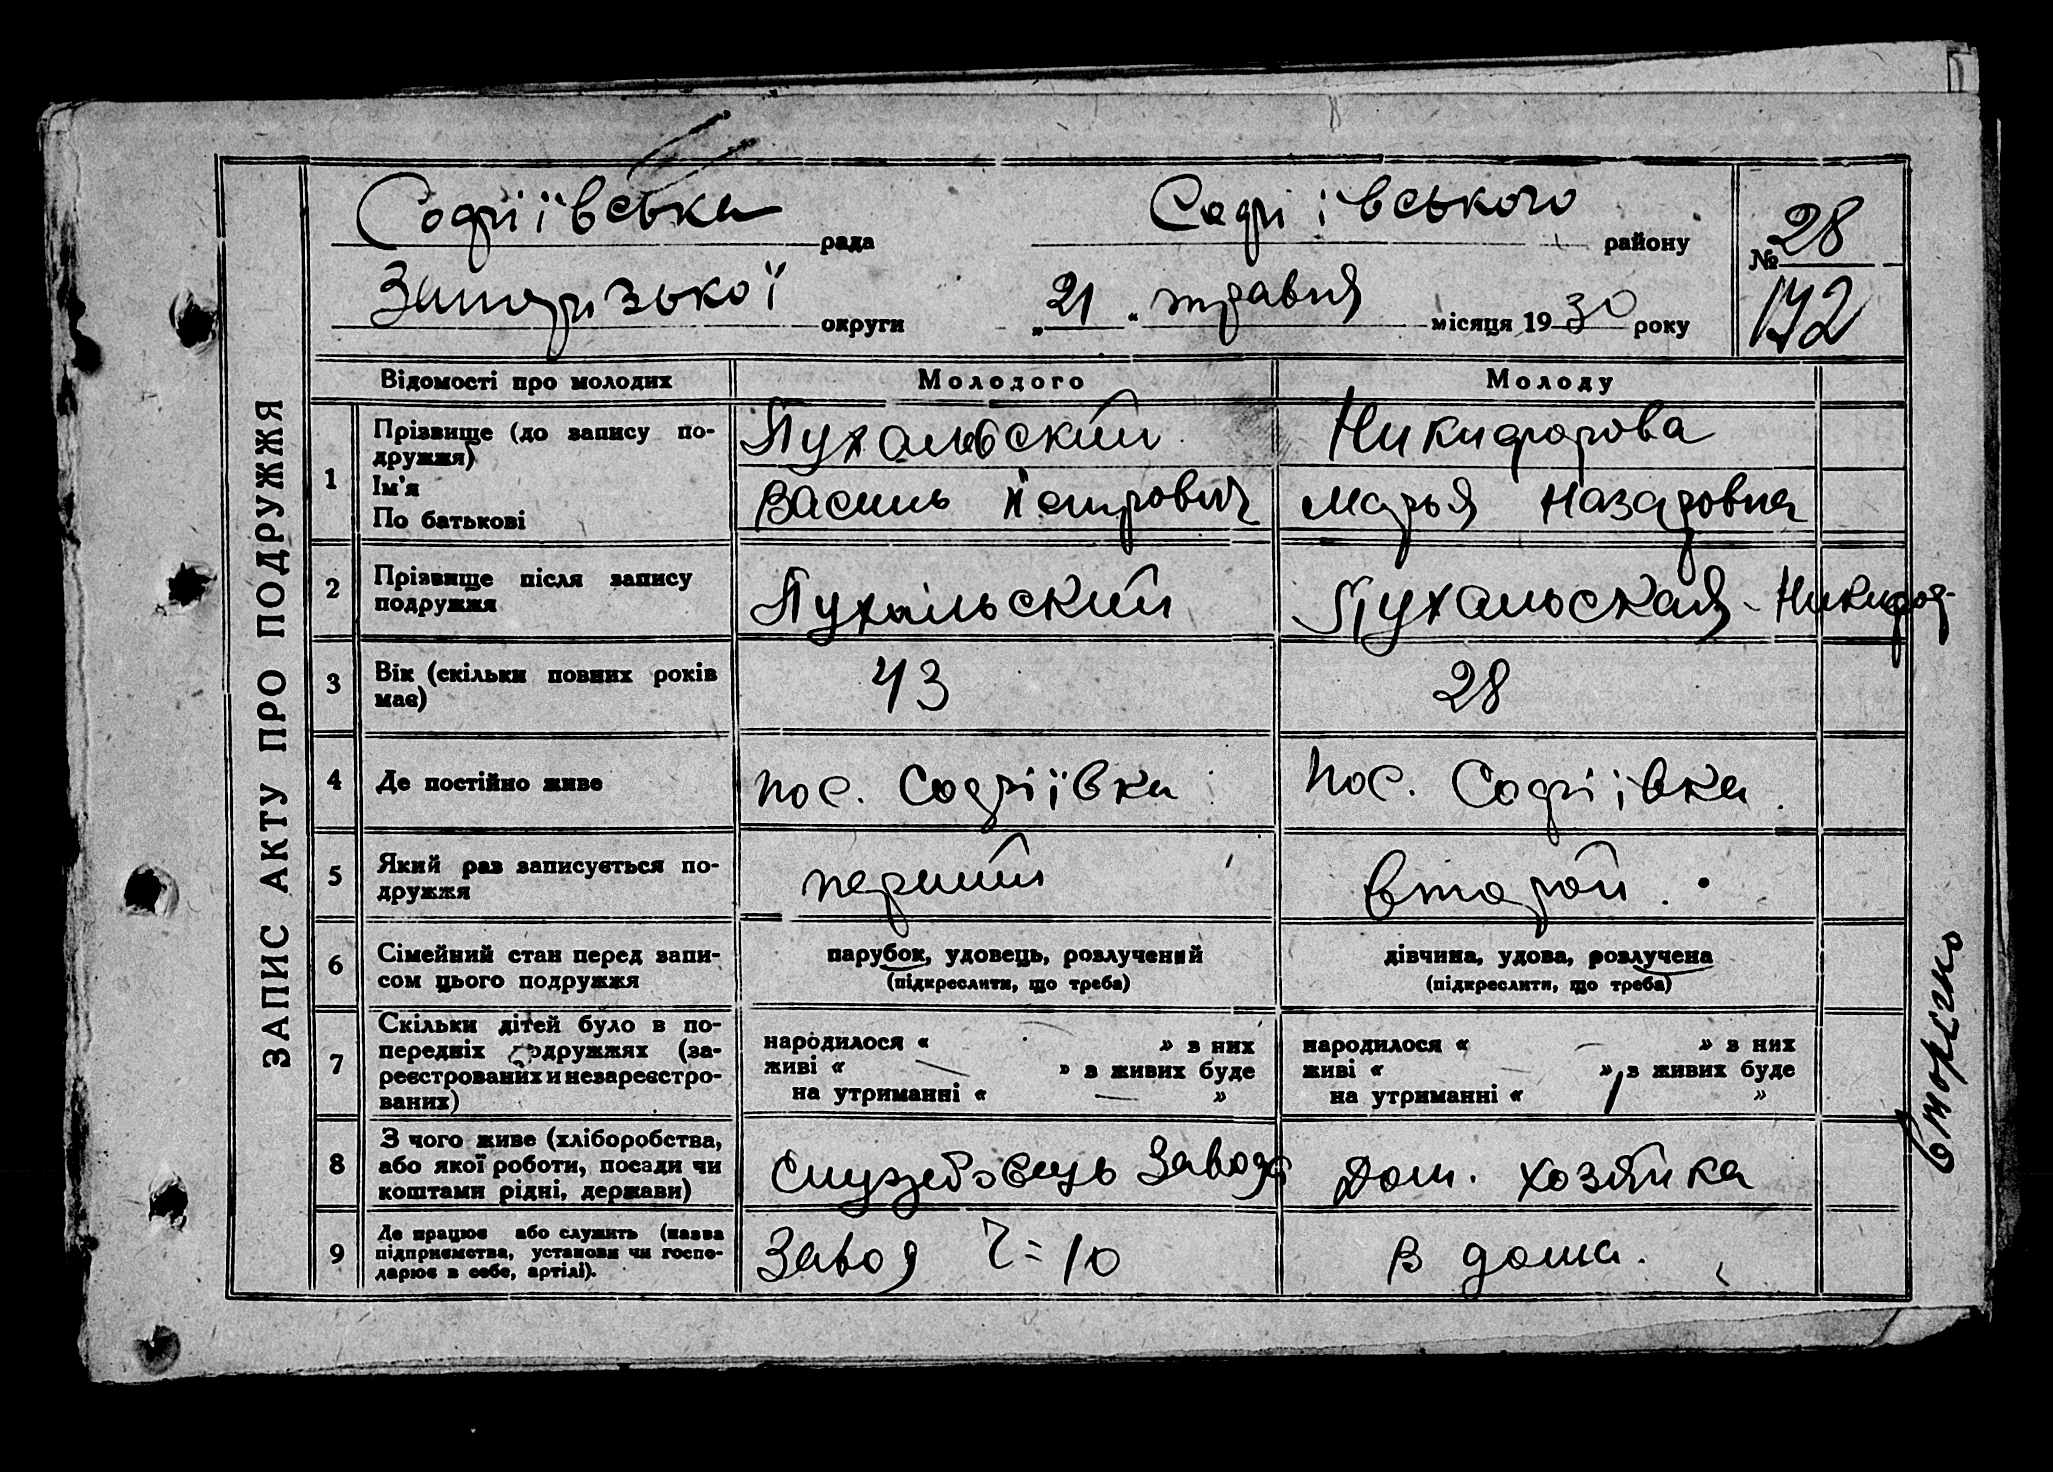 ЗАПИС АКТУ ПРО ПОДРУЖЖЯ
Софіївська рада Софіївського району № 28
Запорізької округи „21“ травня місяця 1930 року 172
Відомості про молодих Молодого Молоду
1 Прізвище (до запису по-
дружжя)
Ім'я
По батькові
Пухальский
Василь Петрович
Никифорова
Марья Назаровна
2 Прізвище після запису
подружжя
Пухальский
Пухальская-Никифор-
3 Вік (скільки повних років
має)
43
28
4 Де постійно живе
пос. Софіївка
пос. Софіївка
5 Який раз записується по-
дружжя
перший
второй
6 Сімейний стан перед запи-
сом цього подружжя
парубок, удовець, розлучений
(підкреслити, що треба)
дівчина, удова, розлучена
(підкреслити, що треба)
7 Скільки дітей було в по-
передніх подружжях (за-
реєстрованих и незареєстро-
ваних)
народилося « » в них
живі « — » в живих буде
на утриманні « — »
народилося « — » в них
живі « » в живих буде
на утриманні « »
8 З чого живе (хліборобства,
або якої роботи, посади чи
коштами рідні, держави)
Завода
Дом. хозяйка
9 Де працює або служить (назва
підприємства, установи чи госпо-
дарює в себе, артілі).
Завод Ч=10
в дома.
вторично